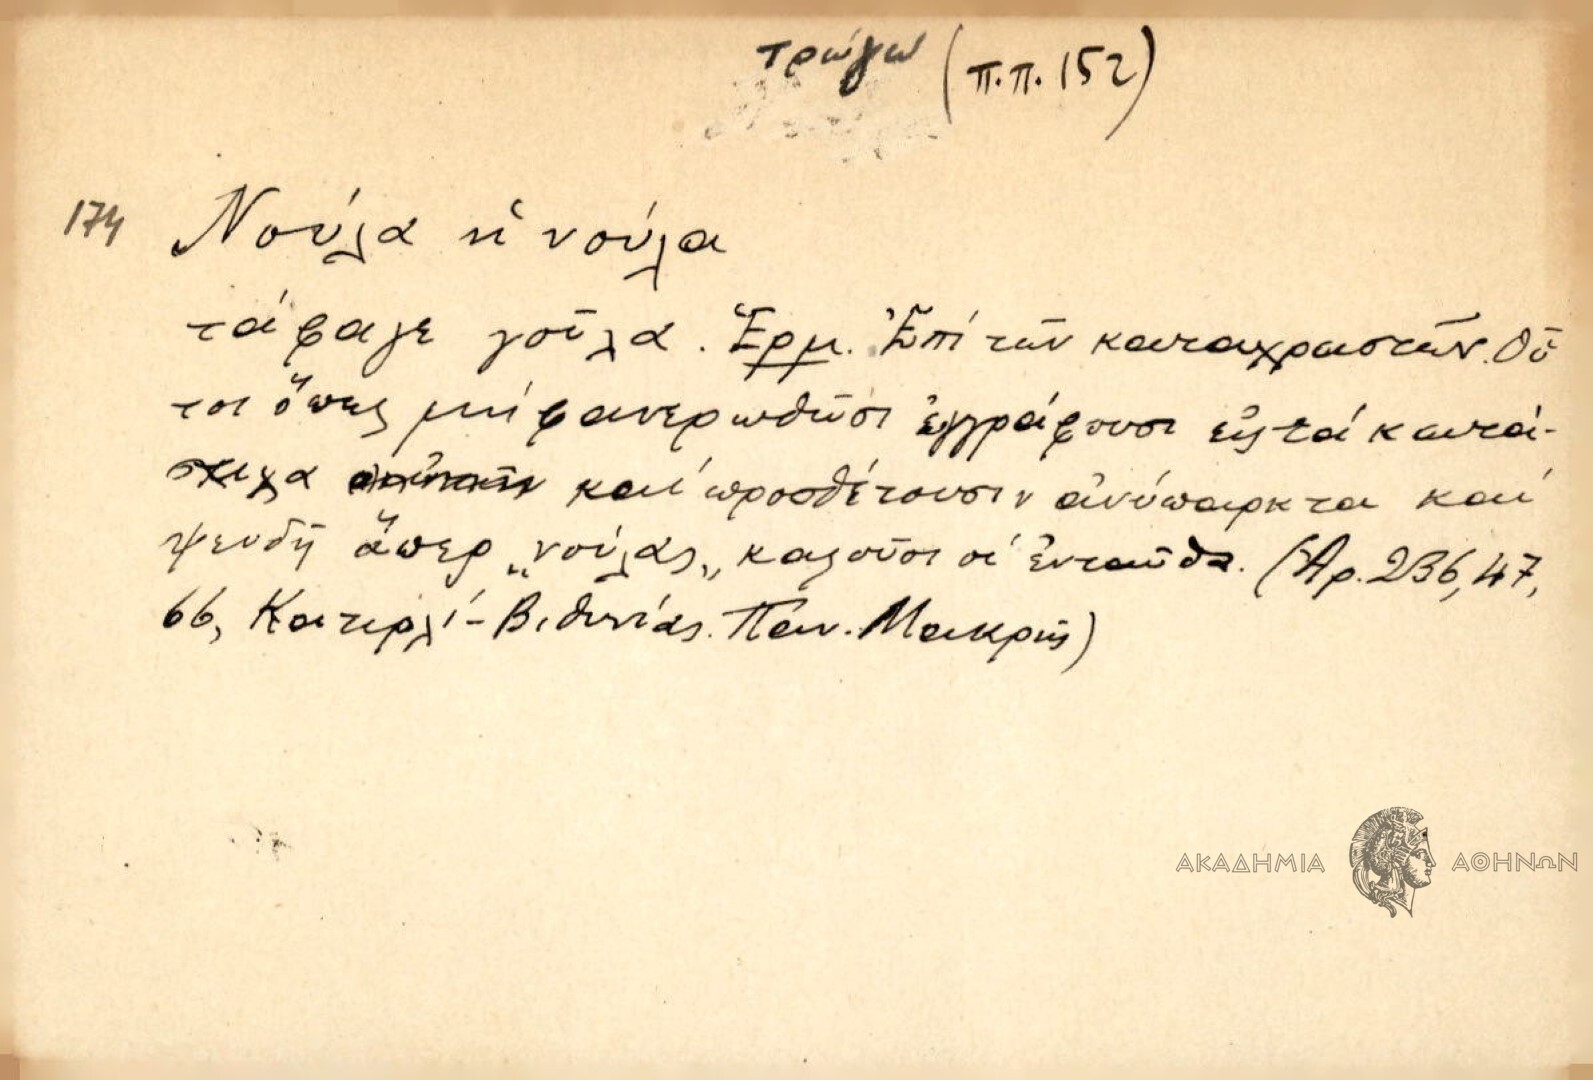 τρώγω (π.π. 152)
174 Νούλα κὶ νούλα
τάφαγε γοῦλα. Ἑρμ. Ἐπί τῶν καταχραστῶν. Οὗ
τοι ὅπως μή φανερωθῶσι ἐγγράφουσι εἰς τά κατά-
στιχα καί προσθέτουσιν ἀνύπαρκτα καί
ψευδῆ ἅπερ „νούλας„ καλοῦσι οἱ ἐνταῦθα. (Ἀρ. 236, 47,
66, Κατιρλί-Βιθυνίας. Παν. Μακρῆς)
ΑΚΑΔΗΜΙΑ ΑΘΗΝΩΝ